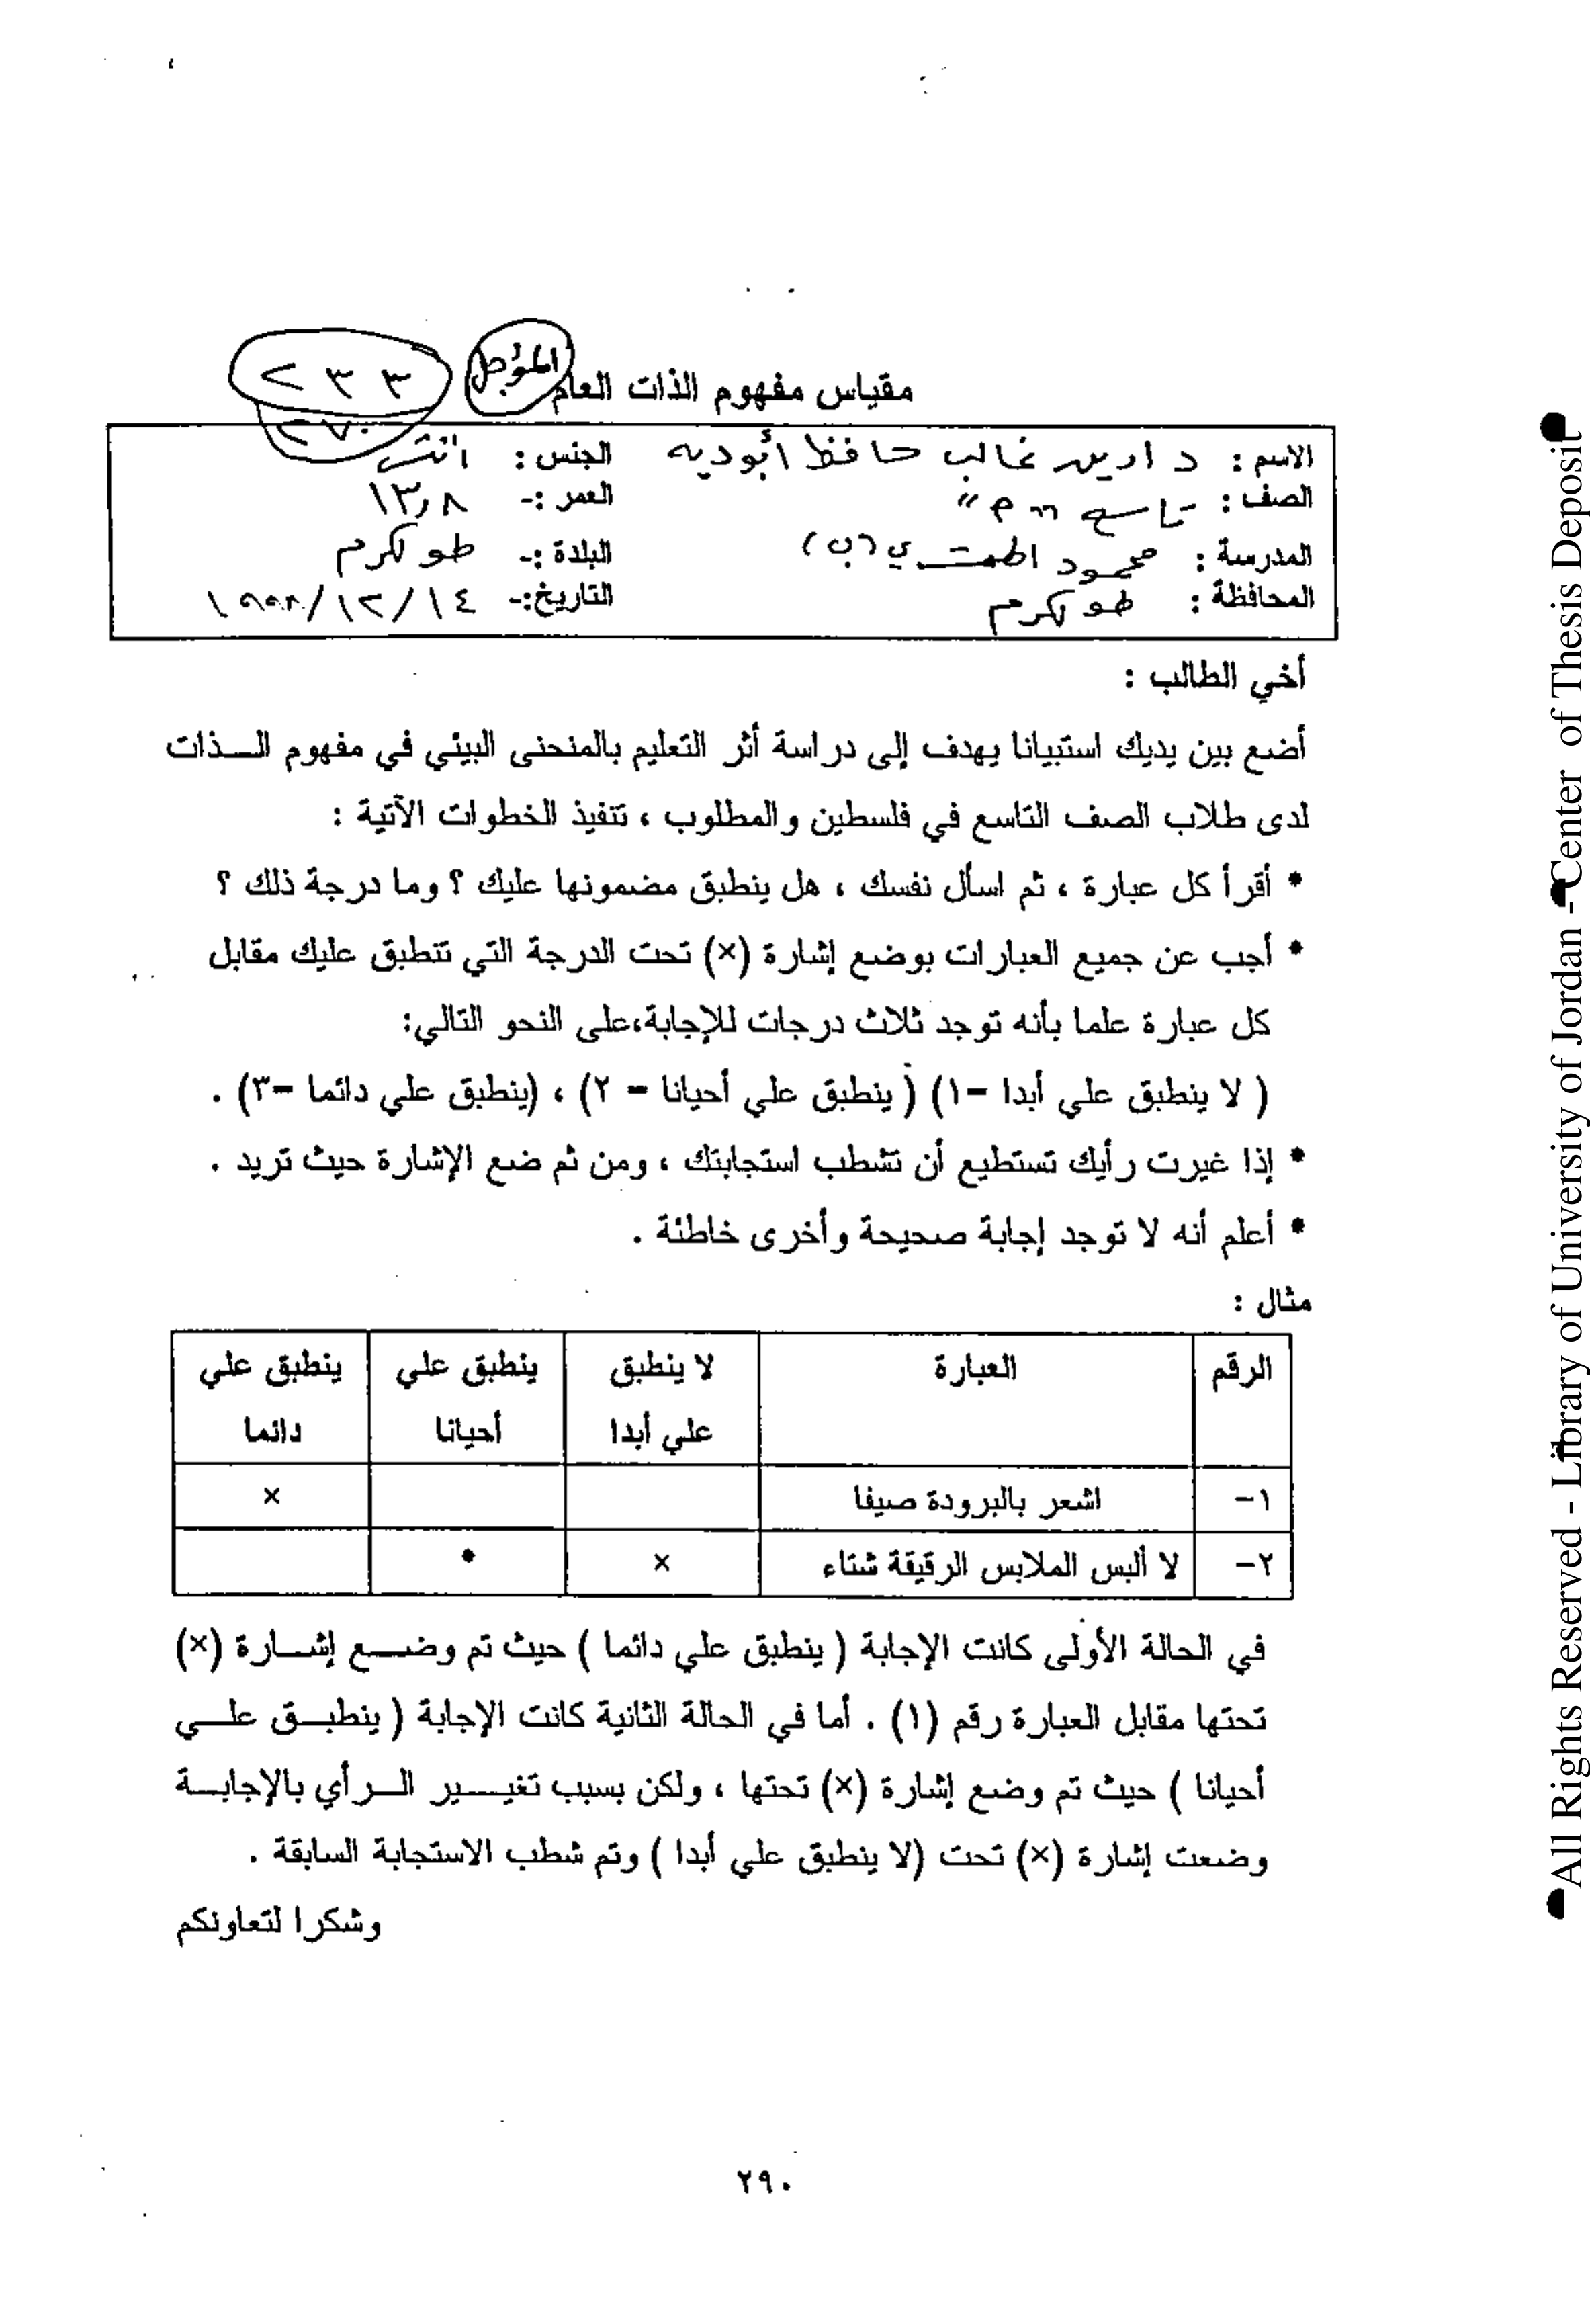 مقياس مفهوم الذات العام المؤجل ٢٣٣
٢٧٠
الاسم : دارين غالب حافظ أبوديه الجنس : انثى
الصف : تاسع "م" العمر :- ١٣,٨
المدرسة : محمود (ب) البلدة :- طولكرم
المحافظة : طولكرم التاريخ:- ١٤/١٢/١٩٩٨
أخي الطالب :
أضع بين يديك استبيانا يهدف إلى دراسة أثر التعليم بالمنحنى البيئي في مفهوم الـــذات
لدى طلاب الصف التاسع في فلسطين والمطلوب ، تتفيذ الخطوات الآتية :
* أقرأ كل عبارة ، ثم اسأل نفسك ، هل ينطبق مضمونها عليك ؟ وما درجة ذلك ؟
* أجب عن جميع العبارات بوضع إشارة (×) تحت الدرجة التي تتطبق عليك مقابل
كل عبارة علما بأنه توجد ثلاث درجات للإجابة،على النحو التالي:
( لا ينطبق علي أبدا -١) ( ينطبق علي أحيانا - ٢) ، (ينطبق علي دائما -٣) .
* إذا غيرت رأيك تستطيع أن تشطب استجابتك ، ومن ثم ضع الإشارة حيث تريد .
* أعلم أنه لا توجد إجابة صحيحة وأخرى خاطئة .
مثال :
الرقم العبارة لا ينطبق ينطبق علي ينطبق علي
علي أبدا أحيانا دائما
١- اشعر بالبرودة صيفا ×
٢- لا ألبس الملابس الرقيقة شتاء × *
في الحالة الأولى كانت الإجابة ( ينطبق علي دائما ) حيث تم وضـــع إشـــارة (×)
تحتها مقابل العبارة رقم (١) . أما في الحالة الثانية كانت الإجابة ( ينطبــق علـــي
أحيانا ) حيث تم وضع إشارة (×) تحتها ، ولكن بسبب تغيـــير الـــرأي بالإجابــة
وضعت إشارة (×) تحت (لا ينطبق علي أبدا ) وتم شطب الاستجابة السابقة .
وشكرا لتعاونكم
٢٩٠
All Rights Reserved - Library of University of Jordan - Center of Thesis Deposit